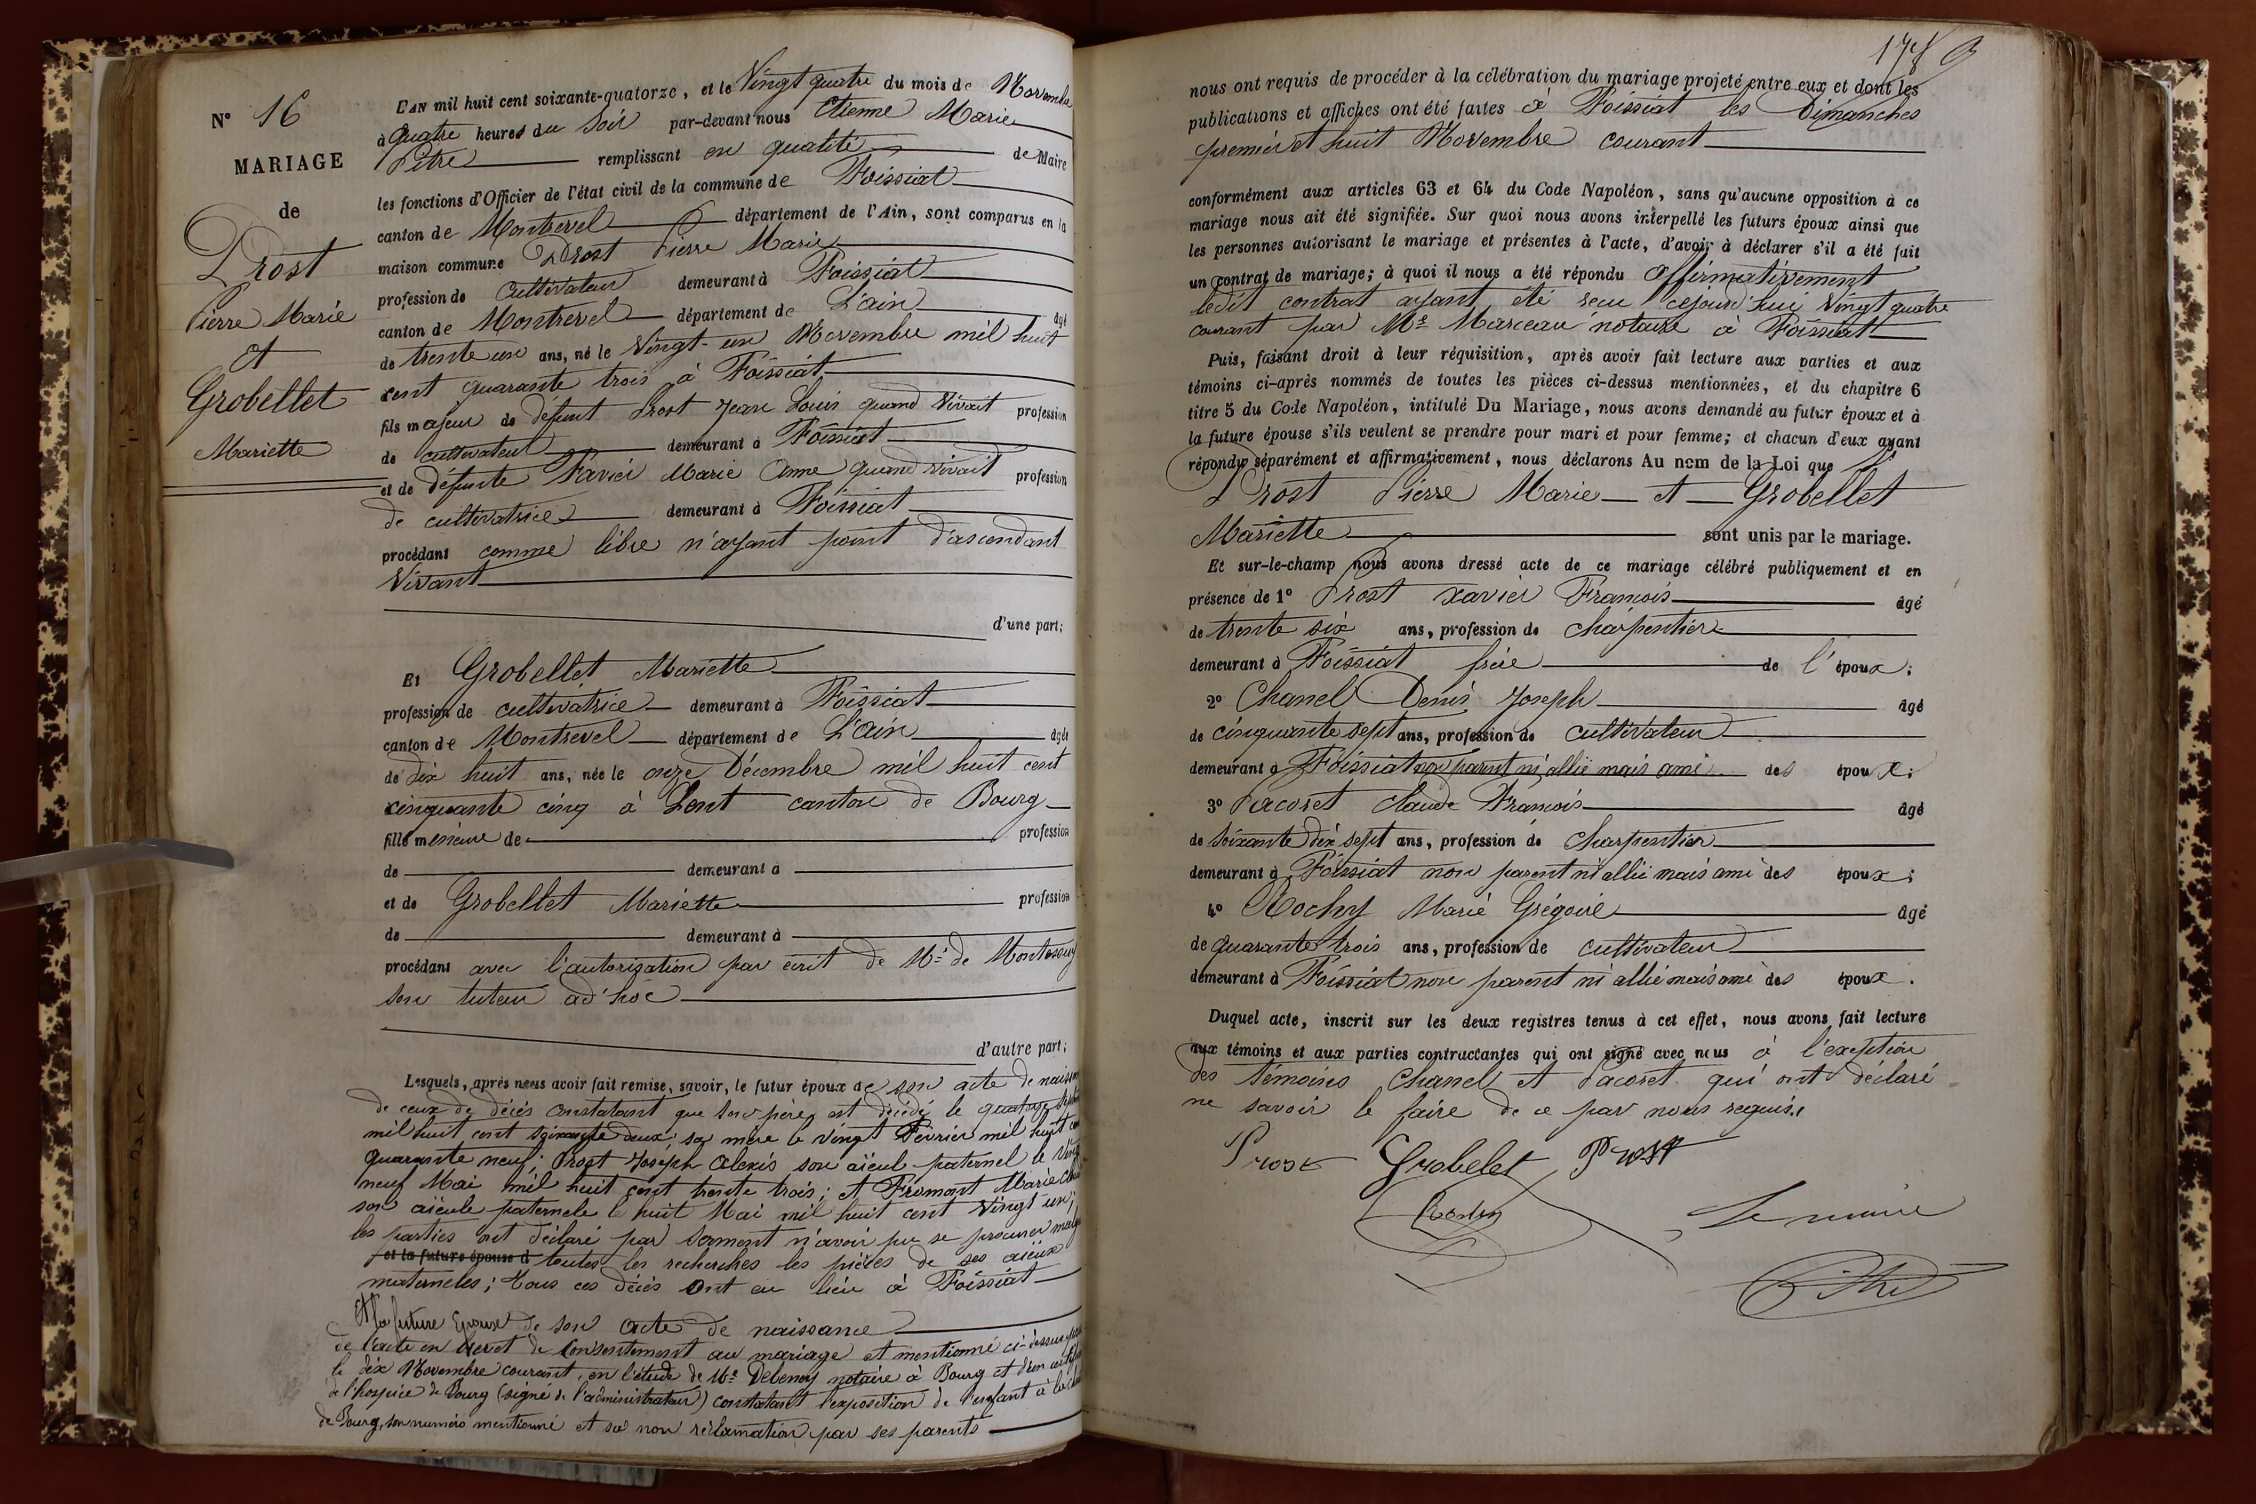 N° 16
MARIAGE
de
Prost
Pierre Marie
et
Grobellet
Mariette
L'AN mil huit cent soixante-quatorze, et le Vingt quatre du mois de Novembre
à quatre heures du Soir par-devant nous Etienne Marie
Pitre remplissant en qualité de Maire
les fonctions d'Officier de l'état civil de la commune de Foissiat
canton de Montrevel département de l'Ain, sont comparus en la
maison commune Prost Pierre Marie
profession de cultivateur demeurant à Foissiat
canton de Montrevel département de L'ain âgé
de trente un ans, né le Vingt-un Novembre mil huit
cent quarante trois à Foissiat
fils majeur de défunt Prost Jean Louis quand vivait profession
de cultivateur demeurant à Foissiat
et de défunte Favier Marie Anne quand vivait profession
de cultivatrice demeurant à Foissiat
procédant comme libre n'ayant point d'ascendant
Vivant
d'une part;
Et Grobellet Mariette
profession de cultivatrice demeurant à Foissiat
canton de Montrevel département de L'Ain âgée
de dix huit ans, née le onze Décembre mil huit cent
cinquante cinq à Lent canton de Bourg
fille mineure de profession
de demeurant à
et de Grobellet Mariette profession
de demeurant à
procédant avec l'autorisation par écrit de Mr de Montessuy
son tuteur ad'hoc
d'autre part;
Lesquels, après nous avoir fait remise, savoir, le futur époux de son acte de
de ceux de décès constatant que son père est décédé le quatorze
mil huit cent soixante deux; sa mère le vingt Février mil huit
quarante neuf; Prost Joseph Alexis son aïeul paternel le
neuf Mai mil huit cent trente trois; et Fromont Marie
son aïeule paternele le huit Mai mil huit cent vingt un;
les parties ont déclaré par serment n'avoir pu se procurer
et la future épouse d toutes les recherches les pièces de ses aïeux
maternels; Tous ces décès ont eu lieu à Foissiat
Et la future Epouse de son acte de naissance
de l'acte en brevet de consentement au mariage et mentionné ci-dessus
le dix Novembre courant, en l'étude de Me Debeney notaire à Bourg et d'un
de l'hospice de Bourg (signé de l'administrateur) constatant l'exposition de l'enfant à
de Bourg, son numéro mentionné et sa non réclamation par ses parents
nous ont requis de procéder à la célébration du mariage projeté entre eux et dont les
publications et affiches ont été faites à Foissiat les Dimanches
premier et huit Novembre courant
conformément aux articles 63 et 64 du Code Napoléon, sans qu'aucune opposition à ce
mariage nous ait été signifiée. Sur quoi nous avons interpellé les futurs époux ainsi que
les personnes autorisant le mariage et présentes à l'acte, d'avoir à déclarer s'il a été fait
un contrat de mariage; à quoi il nous a été répondu affirmativement
ledit contrat ayant été reçu cejourd'hui Vingt quatre
courant par Me Marceau notaire à Foissiat
Puis, faisant droit à leur réquisition, après avoir fait lecture aux parties et aux
témoins ci-après nommés de toutes les pièces ci-dessus mentionnées, et du chapitre 6
titre 5 du Code Napoléon, intitulé Du Mariage, nous avons demandé au futur époux et à
la future épouse s'ils veulent se prendre pour mari et pour femme; et chacun d'eux ayant
répondu séparément et affirmativement, nous déclarons Au nom de la Loi que
Prost Pierre Marie et Grobellet
Mariette sont unis par le mariage.
Et sur-le-champ nous avons dressé acte de ce mariage célébré publiquement et en
présence de 1° Prost xavier François âgé
de trente six ans, profession de charpentier
demeurant à Foissiat frère de l'époux;
2° Chanel Denis Joseph âgé
de cinquante sept ans, profession de cultivateur
demeurant à Foissiat non parent ni allié mais ami des époux;
3° Pacoret Claude François âgé
de soixante dix sept ans, profession de charpentier
demeurant à Foissiat non parent ni allié mais ami des époux;
4° Rochy Marie Grégoire âgé
de quarante trois ans, profession de cultivateur
demeurant à Foissiat non parent ni allié mais ami des époux.
Duquel acte, inscrit sur les deux registres tenus à cet effet, nous avons fait lecture
aux témoins et aux parties contractantes qui ont signé avec nous à l'exeption
des témoins Chanel et Pacoret qui ont déclaré
ne savoir le faire de ce par nous requis.
Prost Grobelet Prost
Le maire
Pitre